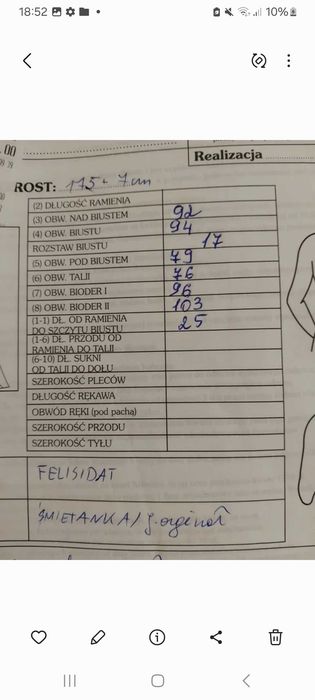 18:52 10%
.00
Realizacja
ROST: 175 + 7 cm
(2) DŁUGOŚĆ RAMIENIA
(3) OBW. NAD BIUSTEM 92
(4) OBW. BIUSTU 94
ROZSTAW BIUSTU 17
(5) OBW. POD BIUSTEM 79
(6) OBW. TALII 76
(7) OBW. BIODER I 96
(8) OBW. BIODER II 103
(1-1) DŁ. OD RAMIENIA 25
DO SZCZYTU BIUSTU
(1-6) DŁ. PRZODU OD
RAMIENIA DO TALII
(6-10) DŁ. SUKNI
OD TALII DO DOŁU
SZEROKOŚĆ PLECÓW
DŁUGOŚĆ RĘKAWA
OBWÓD RĘKI (pod pachą)
SZEROKOŚĆ PRZODU
SZEROKOŚĆ TYŁU
FELISIDAT
ŚMIETANKA / j. orginał